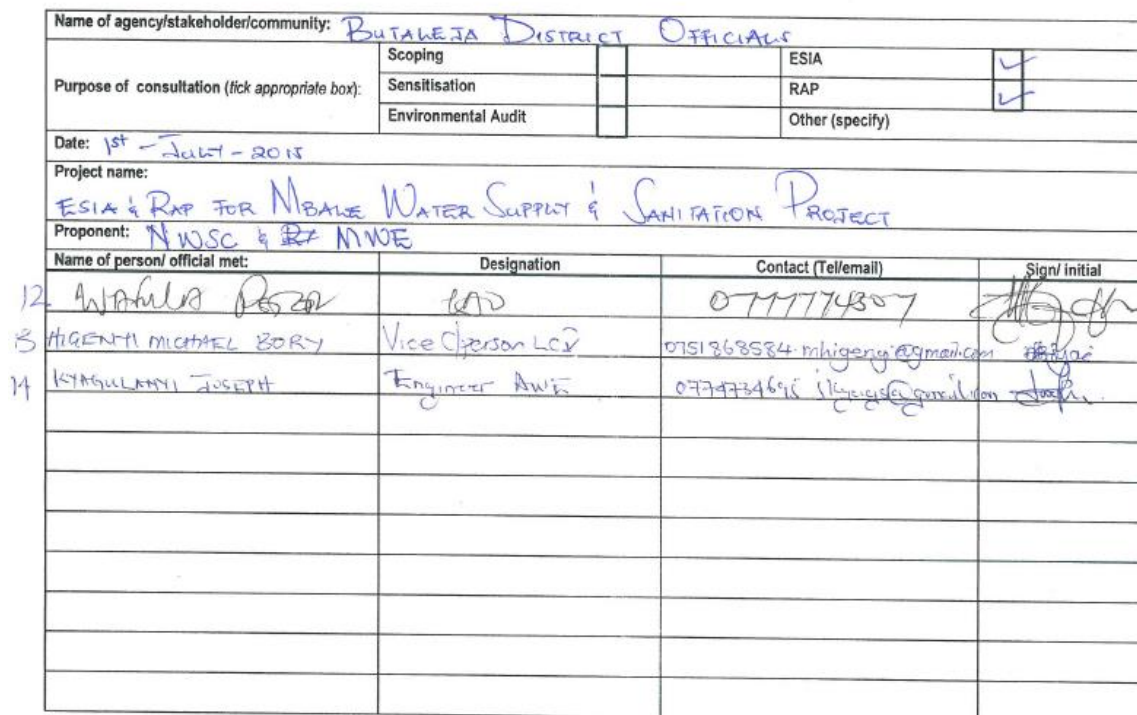 Name of agency/stakeholder/community: BUTALEJA DISTRICT OFFICIALS
Purpose of consultation (tick appropriate box):
Scoping ESIA ✓
Sensitisation RAP ✓
Environmental Audit Other (specify)
Date: 1st - JULY - 2015
Project name:
ESIA & RAP FOR MBALE WATER SUPPLY & SANITATION PROJECT
Proponent: NWSC & MWE
Name of person/ official met: Designation Contact (Tel/email) Sign/ initial
12 0777774307
13 HIGENYI MICHAEL BORY Vice Cperson LCV 0751868584 mhigenyi@gmail.com
14 KYAGULANYI JOSEPH Engineer AWE 0774734695